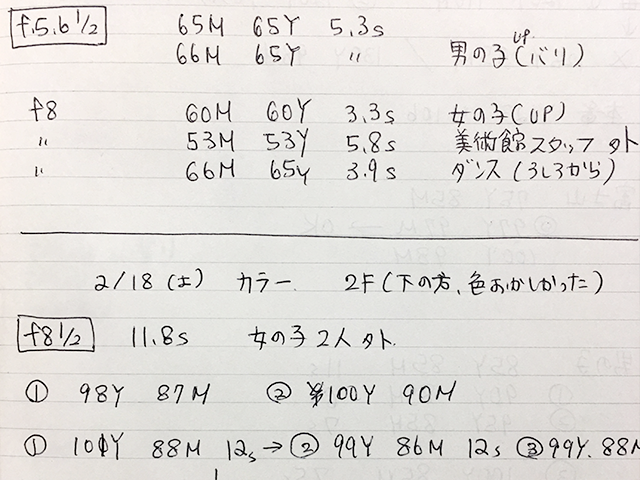 f.5.6 1/2 65M 65Y 5.3s
66M 65Y 〃 男の子(UP バリ)
f8 60M 60Y 3.3s 女の子(UP)
〃 53M 53Y 5.8s 美術館スタッフ外
〃 66M 65Y 3.9s ダンス(ろしろから)
2/18(土) カラー 2F(下の方、色おかしかった)
f8 1/2 11.8s 女の子2人外.
① 98Y 87M ② 100Y 90M
① 101Y 88M 12s → ② 99Y 86M 12s ③ 99Y. 88M